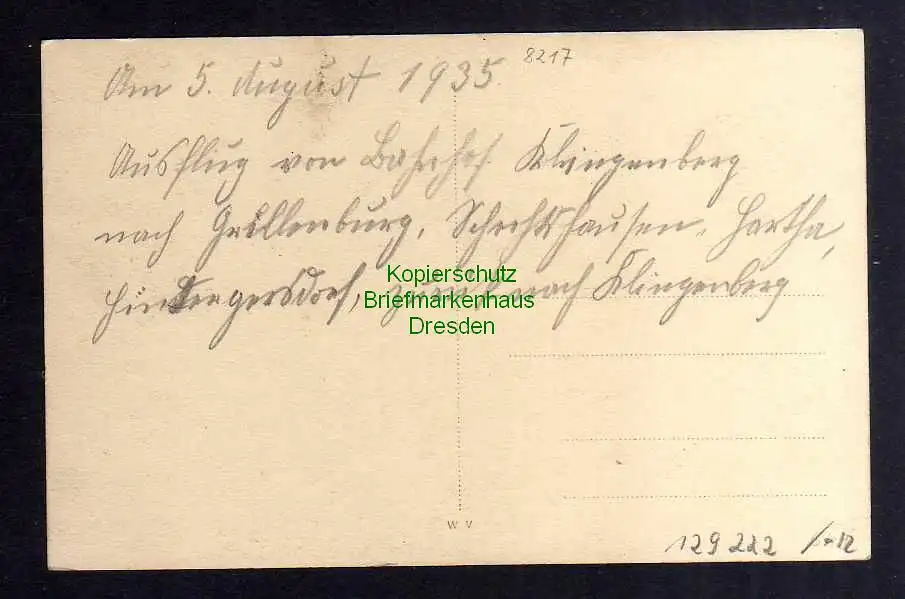 8217
Am 5. August 1935.
Ausflug von Bahnhof Klingenberg
nach Grillenburg, Hartha,
Hintergersdorf, zurück nach Klingenberg
Kopierschutz
Briefmarkenhaus
Dresden
W V
129222